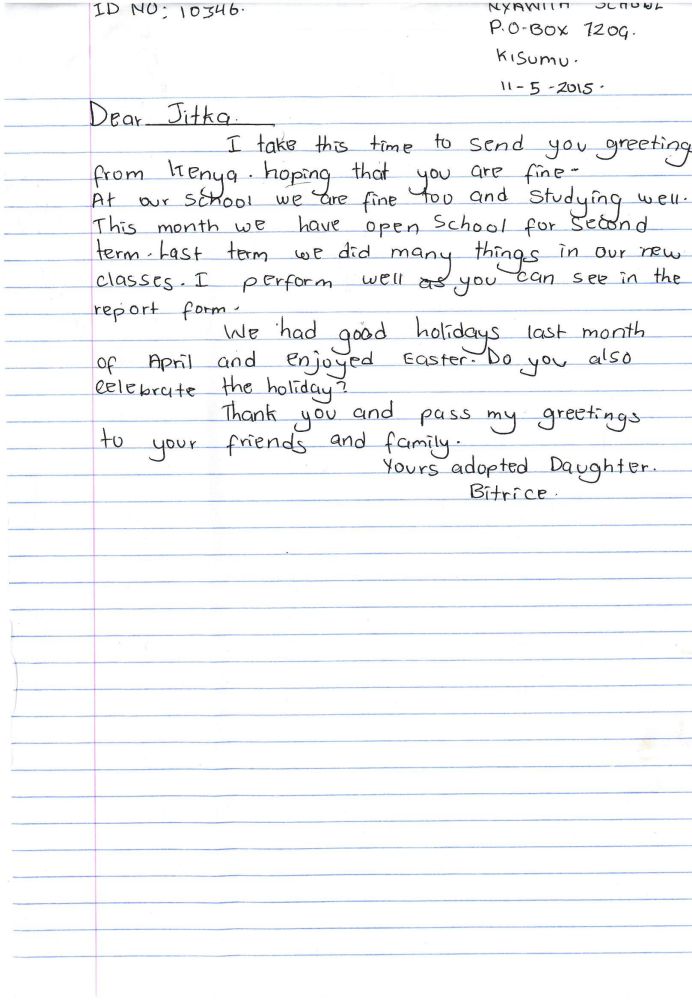 ID NO: 10346.
SCHOOL
P.O-BOX 7209.
Kisumu.
11-5-2015.
Dear Jitka.
I take this time to send you greeting
from Kenya. hoping that you are fine-
At our school we are fine too and studying well.
This month we have open School for second
term. Last term we did many things in our new
classes. I perform well as you can see in the
report form.
We had good holidays last month
of April and enjoyed Easter. Do you also
celebrate the holiday?
Thank you and pass my greetings
to your friends and family.
Yours adopted Daughter.
Bitrice.